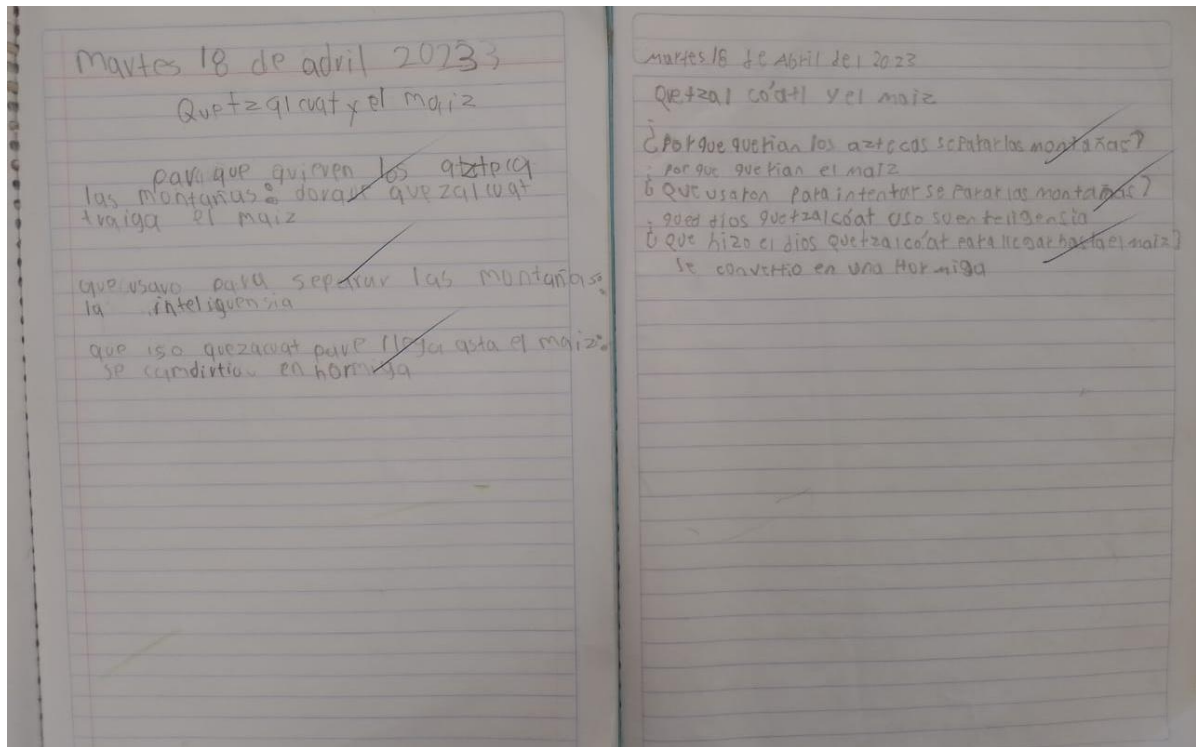 Martes 18 de adril 2023
Quetzalcuat y el maiz
para que quieren los azteca
las montañas: dorque quezalcuat
traiga el maiz
que usavo para separar las montañas:
la inteliguensia
que iso quezacuat para llega asta el maiz:
se camdirtio en hormiga
Martes 18 de Abril del 2023
Qetzal có'atl y el maiz
¿Por que querian los aztecas separar las montañas?
por que querian el maiz
¿Que usaron para intentar separar las montañas?
qued dios quetzalcóat uso su enteligensia
¿Que hizo el dios quetzalco'at para llegar hasta el maiz?
se convertio en una Hormiga